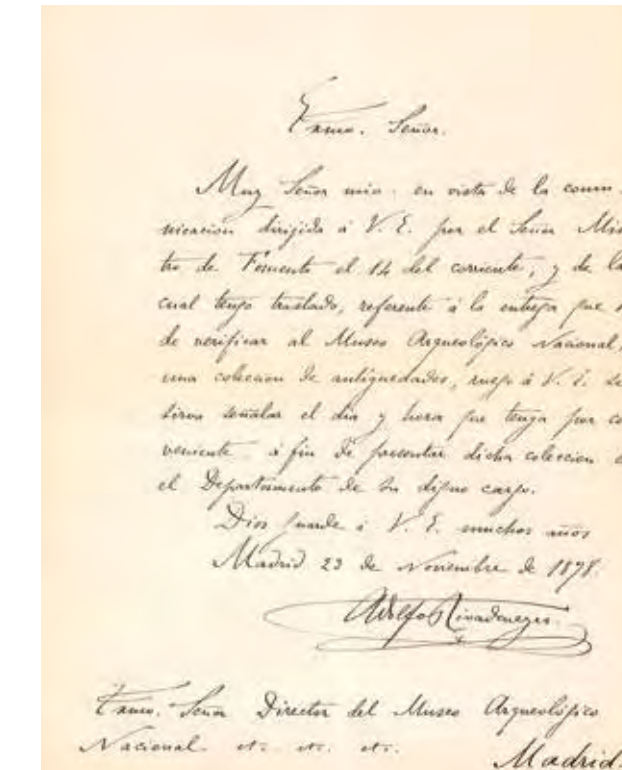 Exmo. Señor.
Muy Señor mio: en vista de la comu-
nicacion dirijida á V. E. por el Señor Minis
tro de Fomento el 14 del corriente, y de la
cual tengo traslado, referente á la entrega que h
de verificar al Museo Arqueológico Nacional,
una coleccion de antiguedades, ruego á V. E. se
sirva señalar el dia y hora que tenga por co
veniente á fin de presentar dicha coleccion e
el Departamento de su digno cargo.
Dios guarde á V. E. muchos años
Madrid 23 de Noviembre de 1878.
Adolfo Rivadeneyra
Exmo. Señor Director del Museo Arqueológico
Nacional etc. etc. etc.
Madrid.